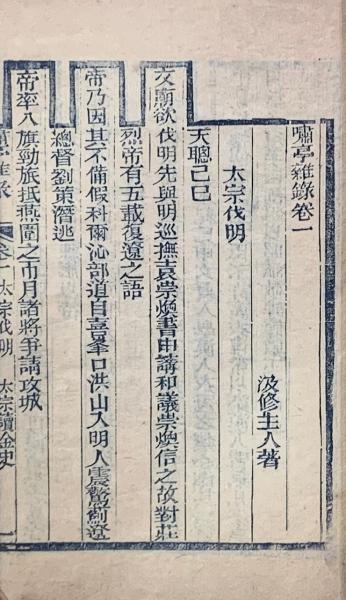 嘯亭雜錄卷一
汲修主人著
太宗伐明
天聰己巳
文廟欲伐明先與明巡撫袁崇煥書申講和議崇煥信之故對莊
烈帝有五載復遼之語
帝乃因其不備假科爾沁部道自喜峯口洪山入明人震驚薊遼
總督劉策潛逃
帝率八旗勁旅抵燕圍之匝月諸將爭請攻城
嘯亭雜錄 卷一 太宗伐明 太宗讀金史 一